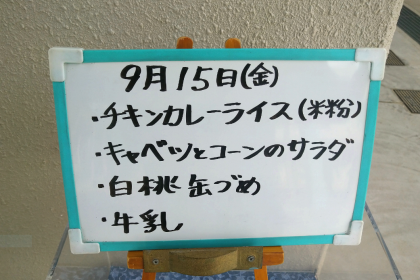 9月15日(金)
・チキンカレーライス(米粉)
・キャベツとコーンのサラダ
・白桃缶づめ
・牛乳